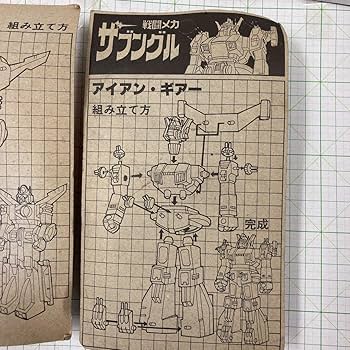 組み立て方
戦闘メカ
ザブングル
アイアン・ギアー
組み立て方
完成